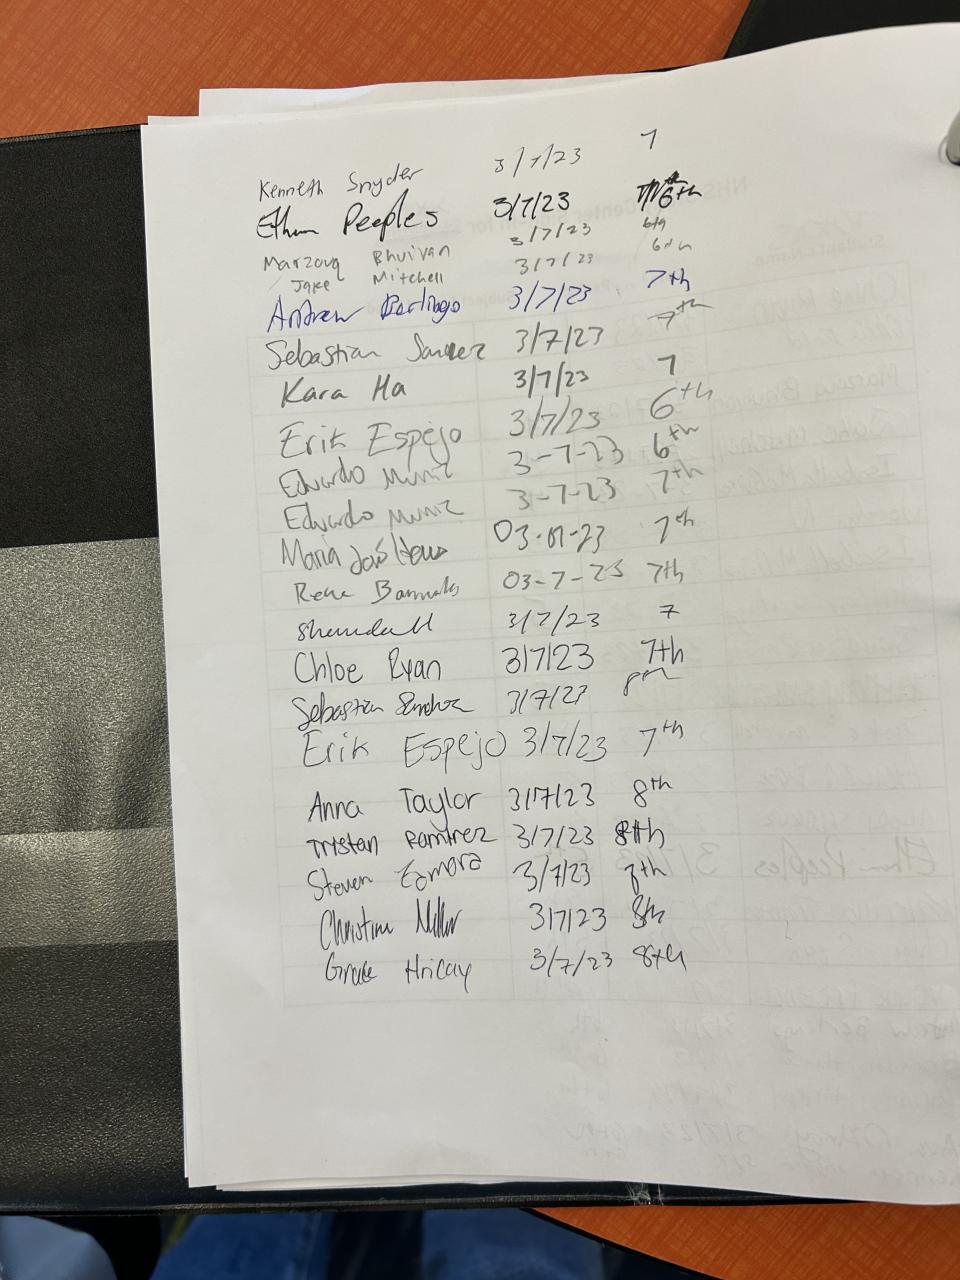 Kenneth Snyder 3/7/23 7
Ethan Peeples 3/7/23 6th
Marzouq Bhuiyan 3/7/23 6th
Jake Mitchell 3/7/23 6th
Andrew 3/7/23 7th
Sebastian 3/7/23 7th
Kara Ha 3/7/23 7
Erik Espejo 3/7/23 6th
Edvardo Muniz 3-7-23 6th
Edvardo Muniz 3-7-23 7th
Maria 03-07-23 7th
Rene 03-7-23 7th
3/7/23 7
Chloe Ryan 3/7/23 7th
Sebastian Sanchez 3/7/23 8th
Erik Espejo 3/7/23 7th
Anna Taylor 3/7/23 8th
Tristan Ramirez 3/7/23 8th
Steven Zamora 3/7/23 8th
Christina Miller 3/7/23 8th
Grace Hricay 3/7/23 8th